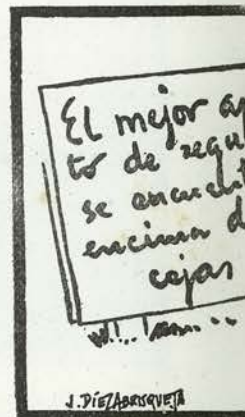 El mejor ap
to de segu
se encuent
encima d
cejas
J. DÍEZ ABRISQUETA